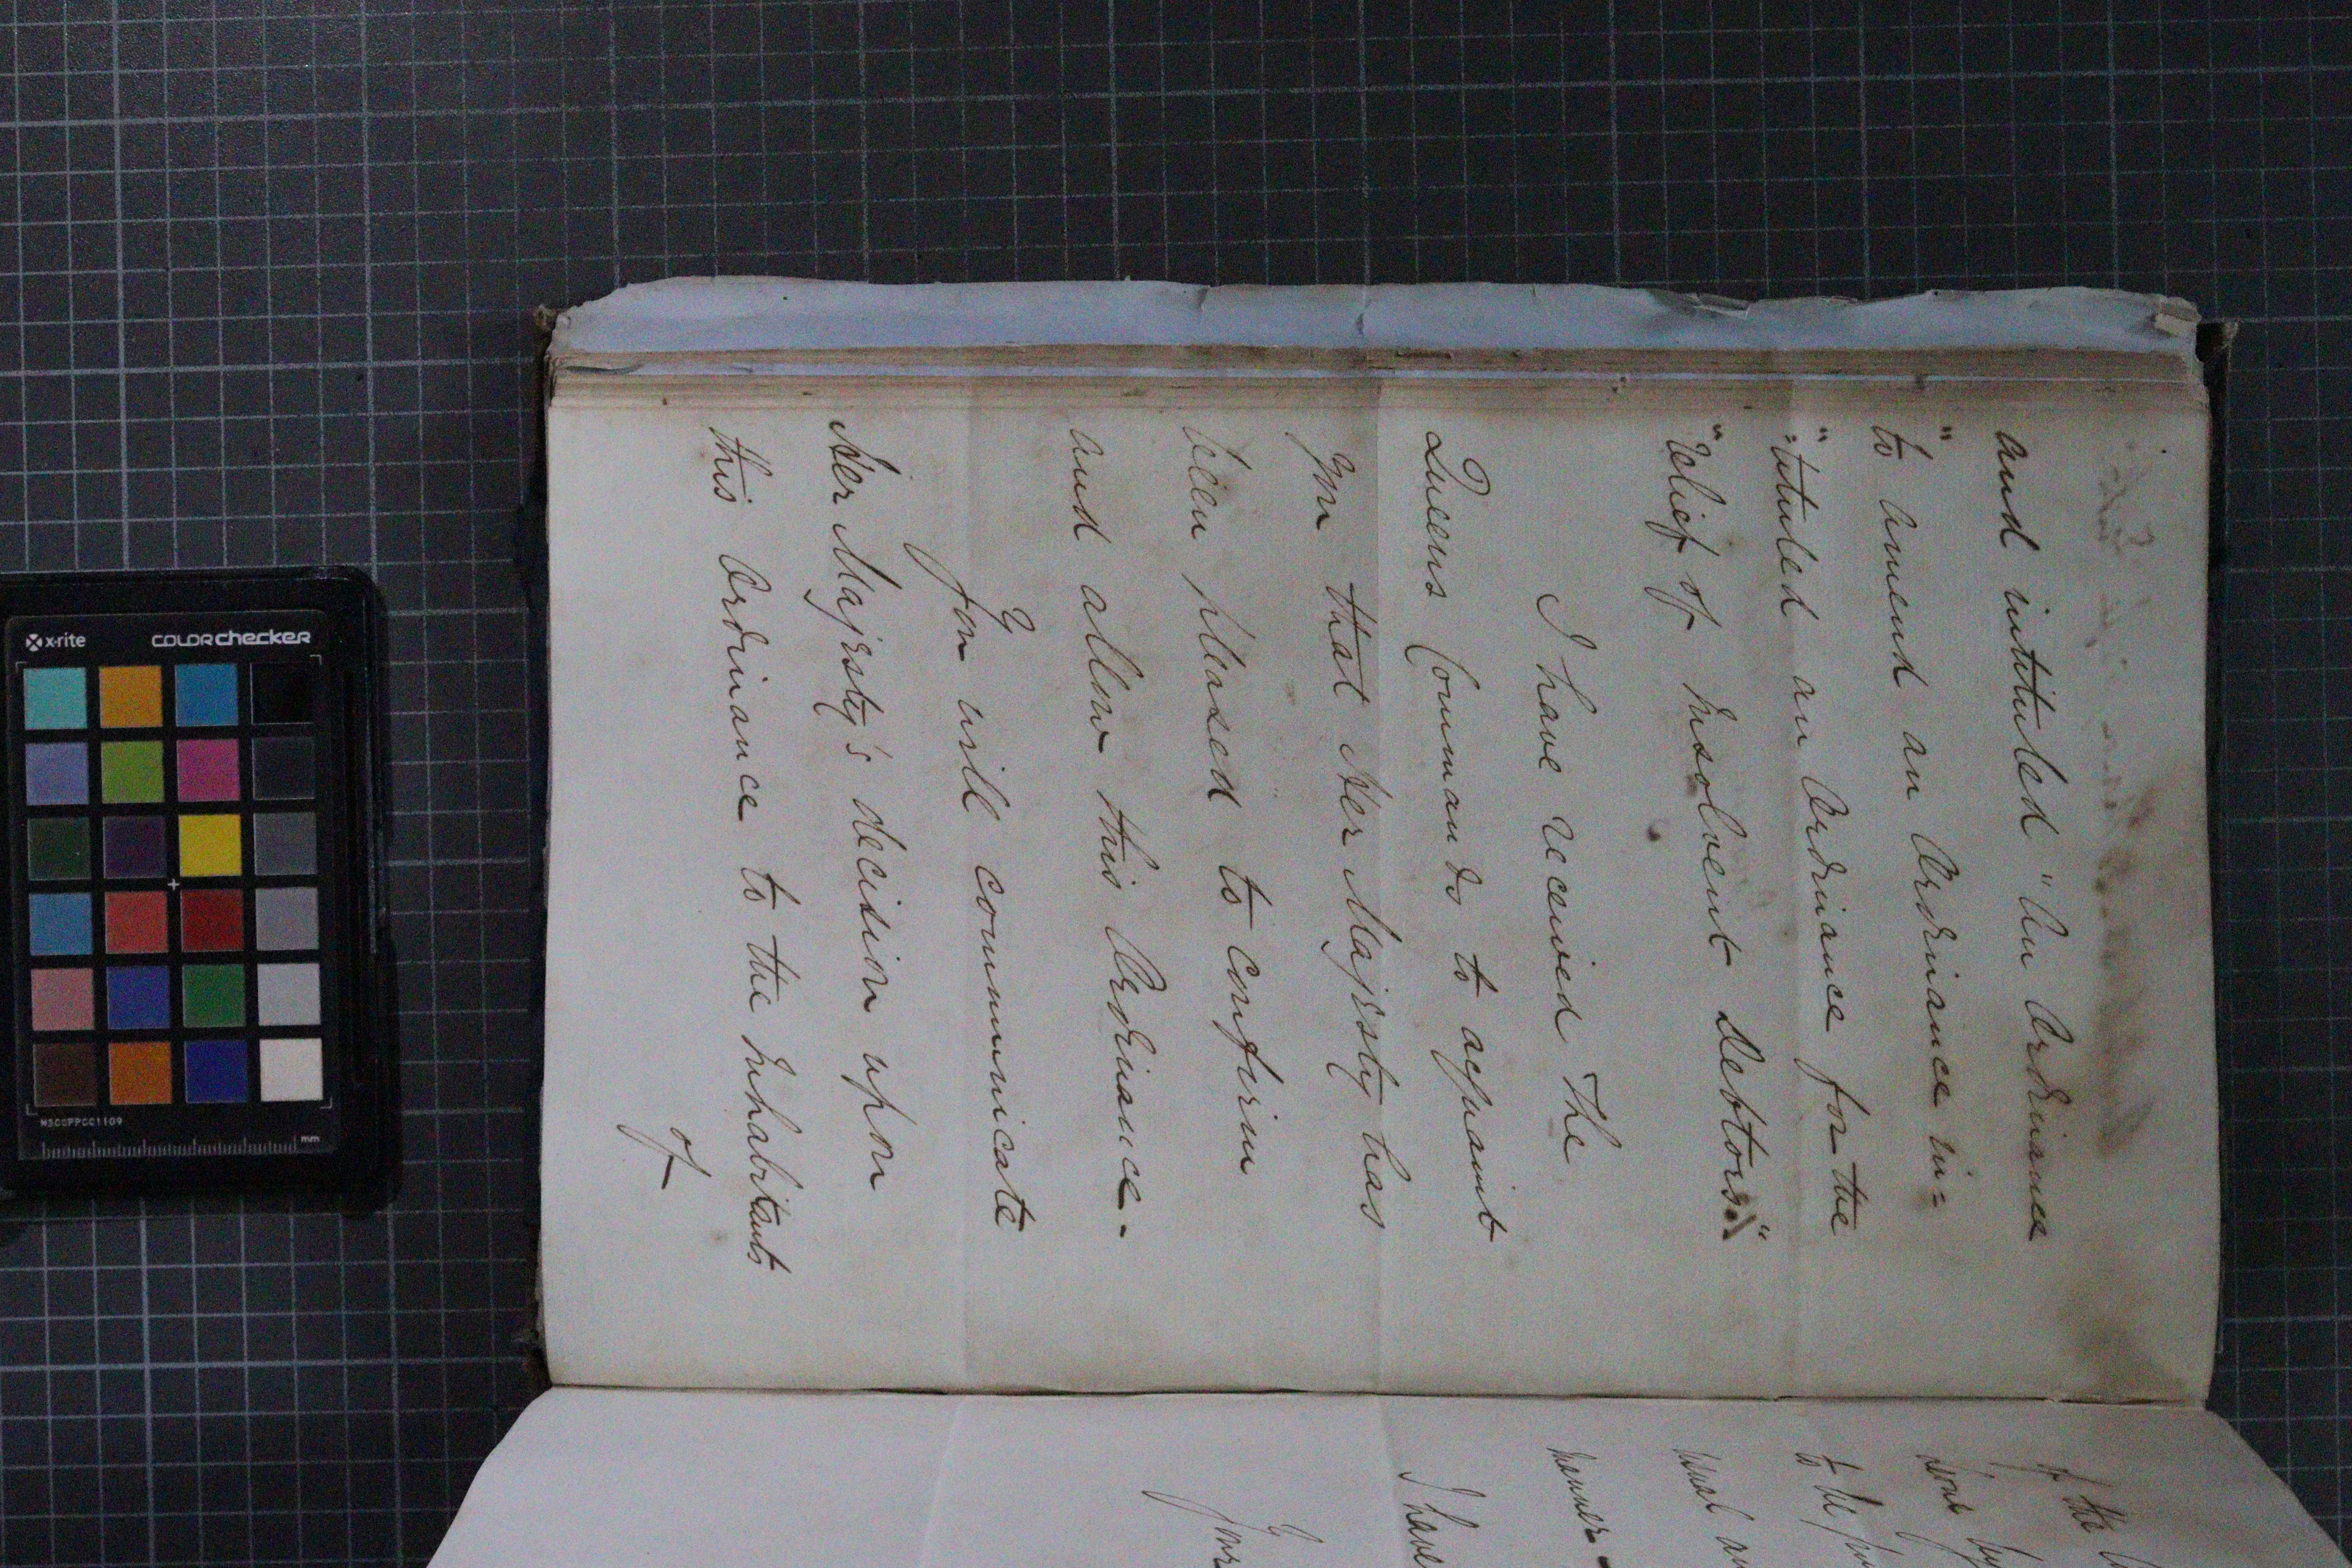 and intituled "An Ordinance
"to amend an Ordinance in=
"tituled an Ordinance for the
"Relief of Insolvent Debtors."
I have received The
Queens Commands to acquaint
You that Her Majesty has
been pleased to confirm
and allow this Ordinance.
You will communicate
Her Majesty's decision upon
this Ordinance to the Inhabitants
of
of the
to the
usual
manner.
I have
Your
x-rite
colorchecker
MSCCPPCC1109
mm